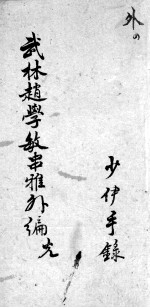 外の
武林趙學敏串雅外編
少伊手錄